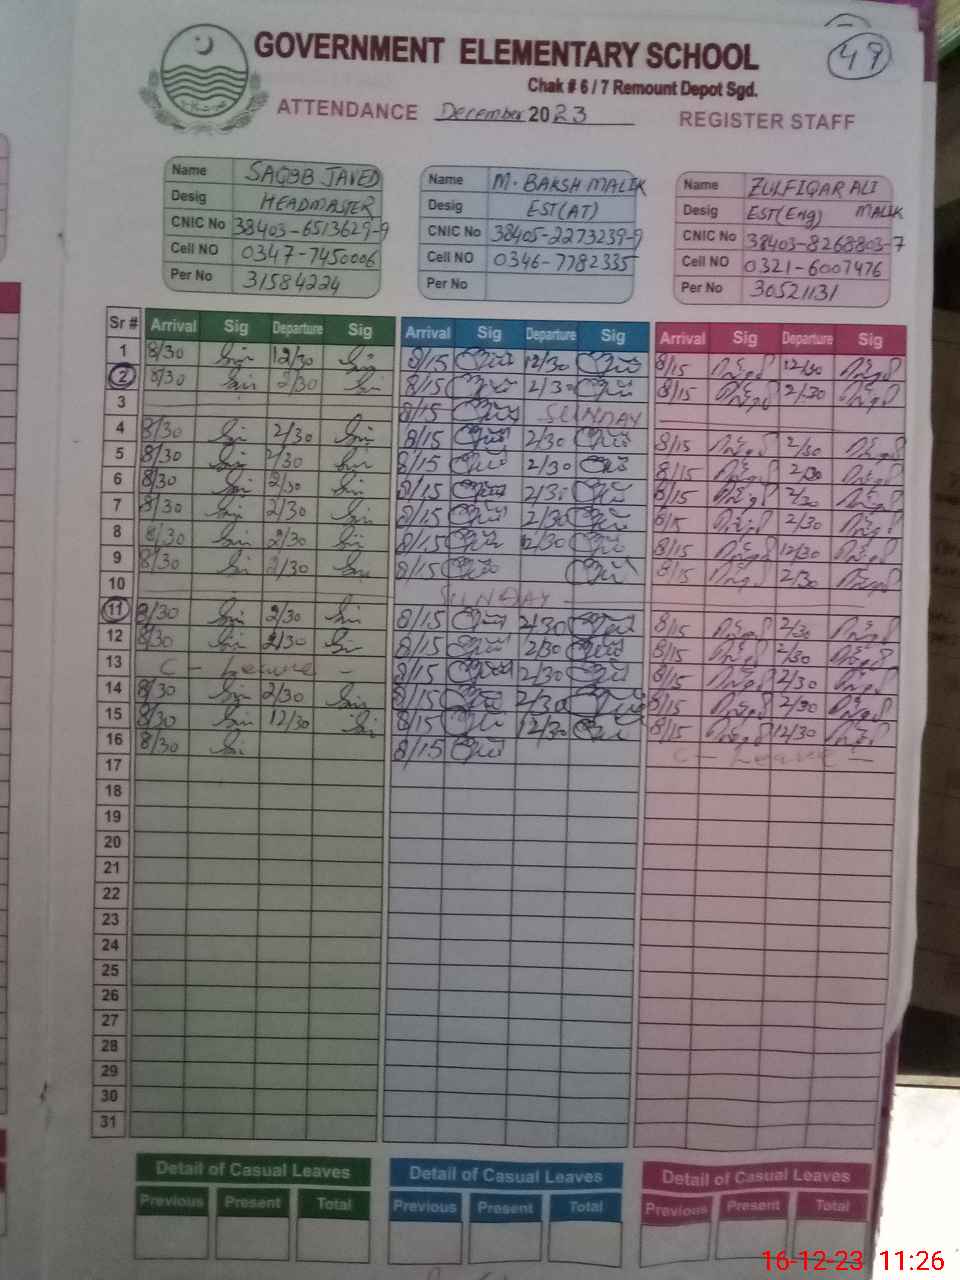 GOVERNMENT ELEMENTARY SCHOOL
49
Chak # 6 / 7 Remount Depot Sgd.
ATTENDANCE December 2023 REGISTER STAFF
Name SAQIB JAVED
Desig HEADMASTER
CNIC No 38403-6513629-9
Cell NO 0347-7450006
Per No 31584224
Name M. BAKSH MALIK
Desig EST(AT)
CNIC No 38405-2273239-9
Cell NO 0346-7782335
Per No
Name ZULFIQAR ALI
Desig EST(Eng) MALIK
CNIC No 38403-8268803-7
Cell NO 0321-6007476
Per No 30521131
Sr # Arrival Sig Departure Sig Arrival Sig Departure Sig Arrival Sig Departure Sig
1 8/30 12/30 8/15 12/30 8/15 12/30
2 8/30 2/30 8/15 2/30 8/15 2/30
3 8/15 SUNDAY
4 8/30 2/30 8/15 2/30 8/15 2/30
5 8/30 2/30 8/15 2/30 8/15 2/30
6 8/30 2/30 8/15 2/30 8/15 2/30
7 8/30 2/30 8/15 2/30 8/15 2/30
8 8/30 2/30 8/15 12/30 8/15 12/30
9 8/30 2/30 8/15 8/15 2/30
10 SUNDAY
11 8/30 2/30 8/15 2/30 8/15 2/30
12 8/30 2/30 8/15 2/30 8/15 2/30
13 C - Leave - 8/15 2/30 8/15 2/30
14 8/30 2/30 8/15 2/30 8/15 2/30
15 8/30 12/30 8/15 12/30 8/15 12/30
16 8/30 8/15 C - Leave -
17
18
19
20
21
22
23
24
25
26
27
28
29
30
31
Detail of Casual Leaves Detail of Casual Leaves Detail of Casual Leaves
Previous Present Total Previous Present Total Previous Present Total
16-12-23 11:26